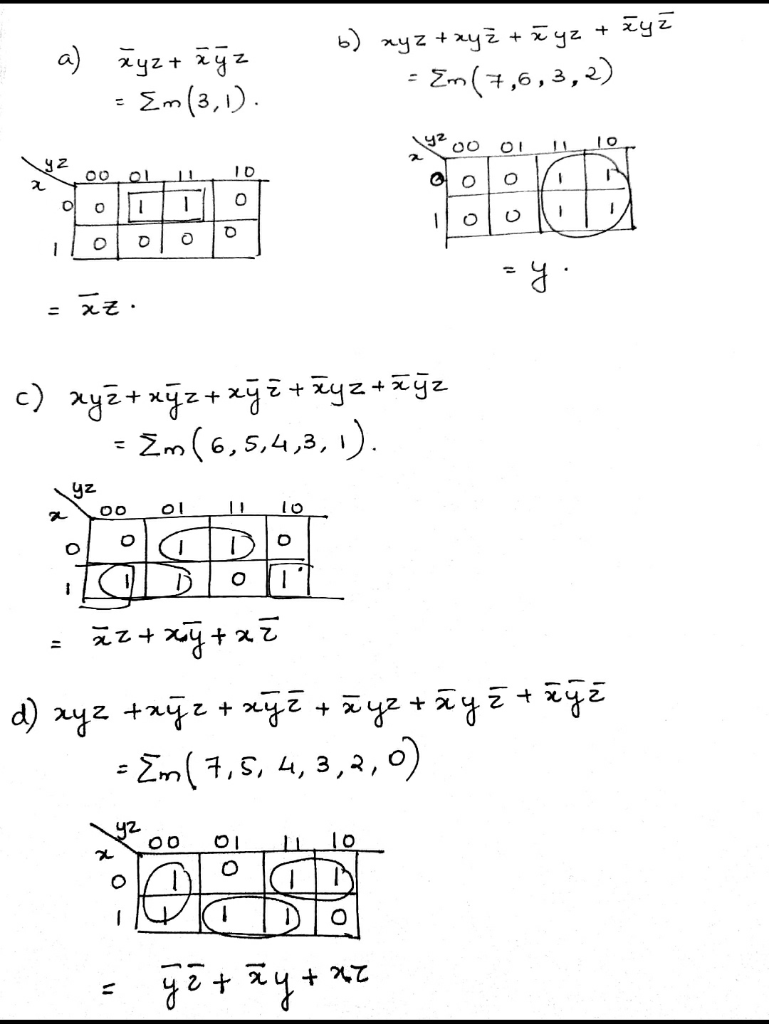 a) x̄yz + x̄ȳz
= Σm(3,1).
yz
x
00 01 11 10
0 0 1 1 0
1 0 0 0 0
= x̄z.
b) xyz + xyz̄ + x̄yz + x̄yz̄
= Σm(7,6,3,2)
yz
x
00 01 11 10
0 0 0 1 1
1 0 0 1 1
= y.
c) xyz̄ + xȳz + xȳz̄ + x̄yz + x̄ȳz
= Σm(6,5,4,3,1).
yz
x
00 01 11 10
0 0 1 1 0
1 1 1 0 1
= x̄z + xȳ + xz̄
d) xyz + xȳz + xȳz̄ + x̄yz + x̄yz̄ + x̄ȳz̄
= Σm(7,5,4,3,2,0)
yz
x
00 01 11 10
0 1 0 1 1
1 1 1 1 0
= ȳz̄ + x̄y + xz